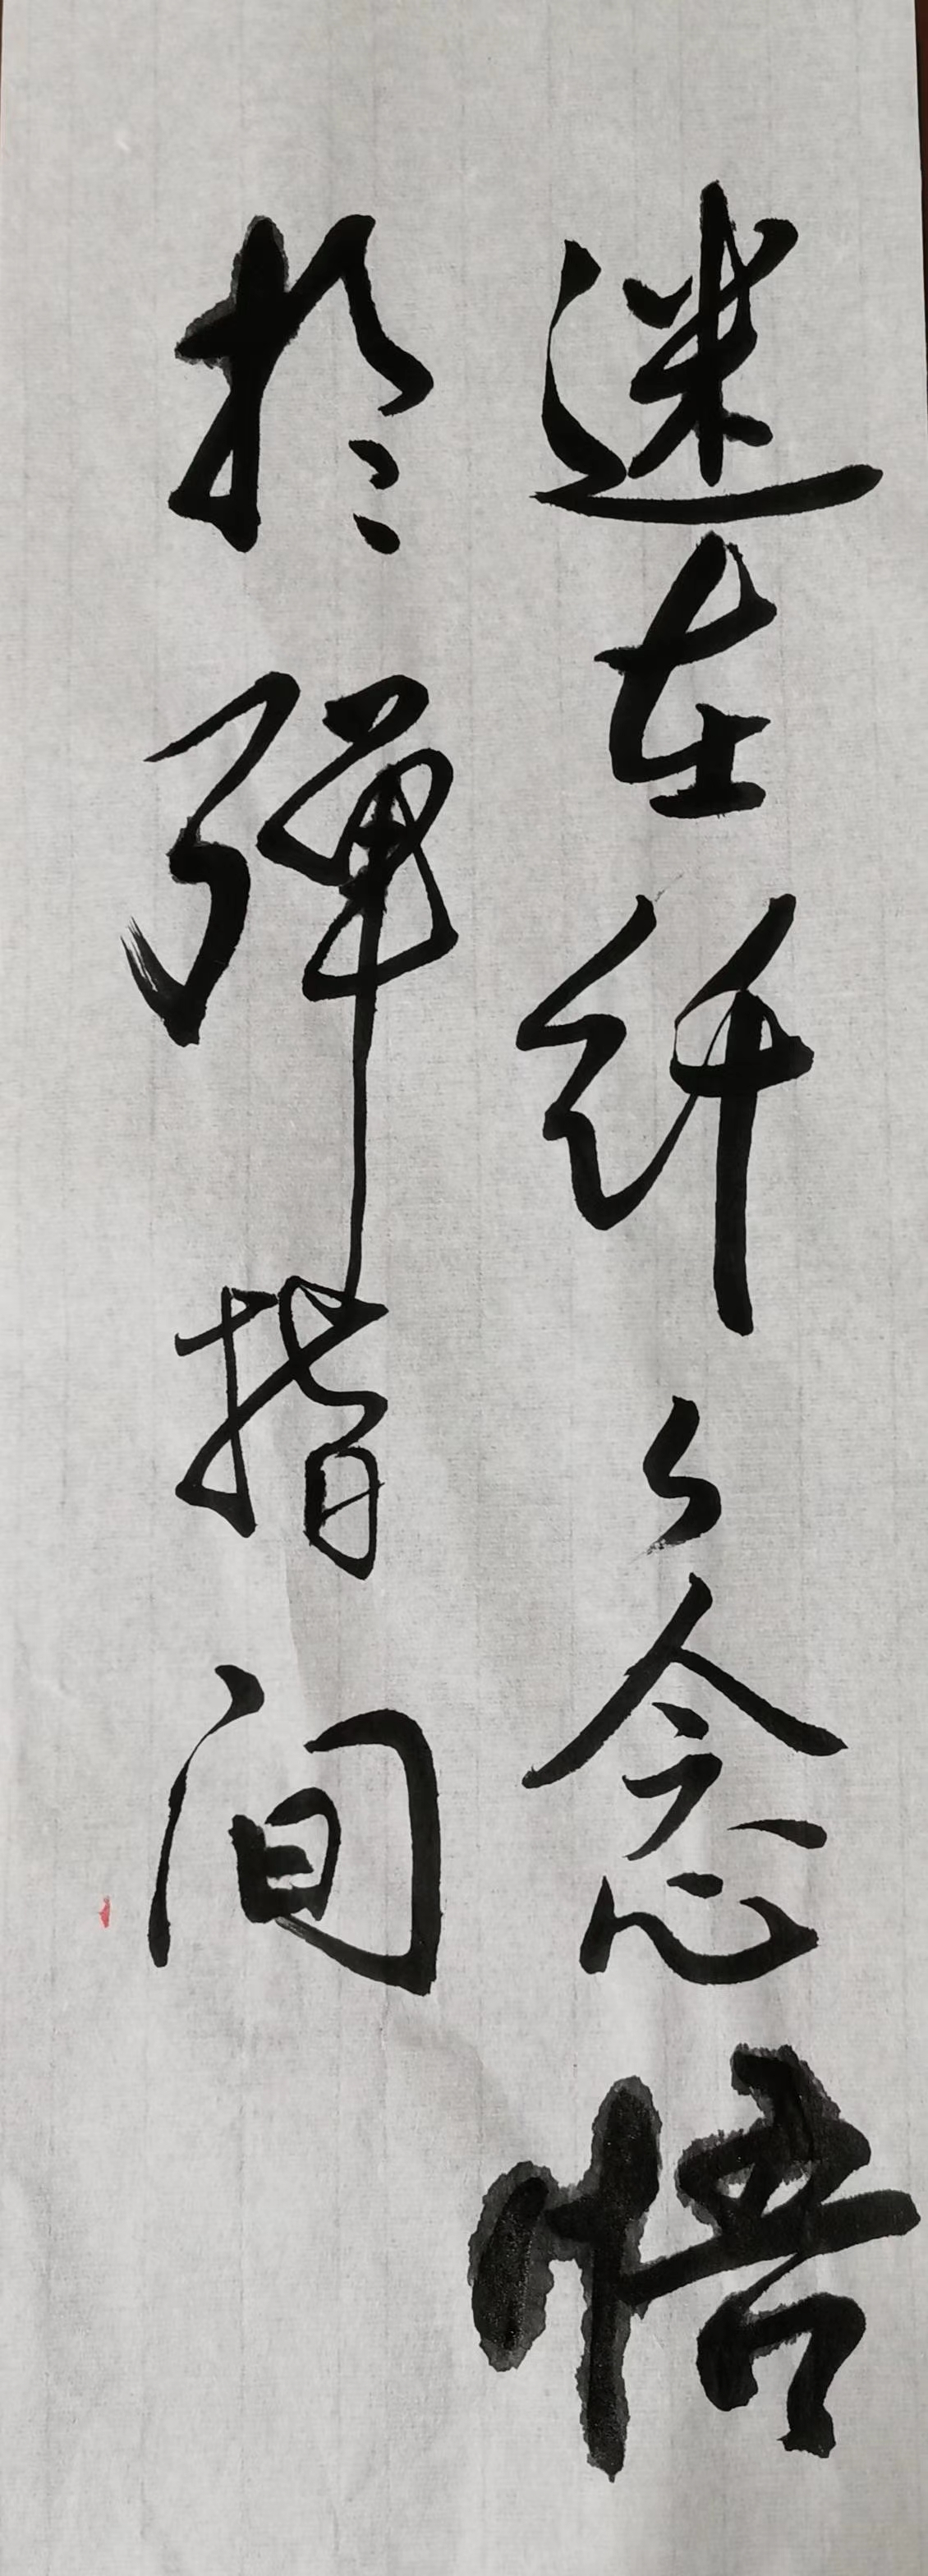 迷在纤々念悟
於弹指间